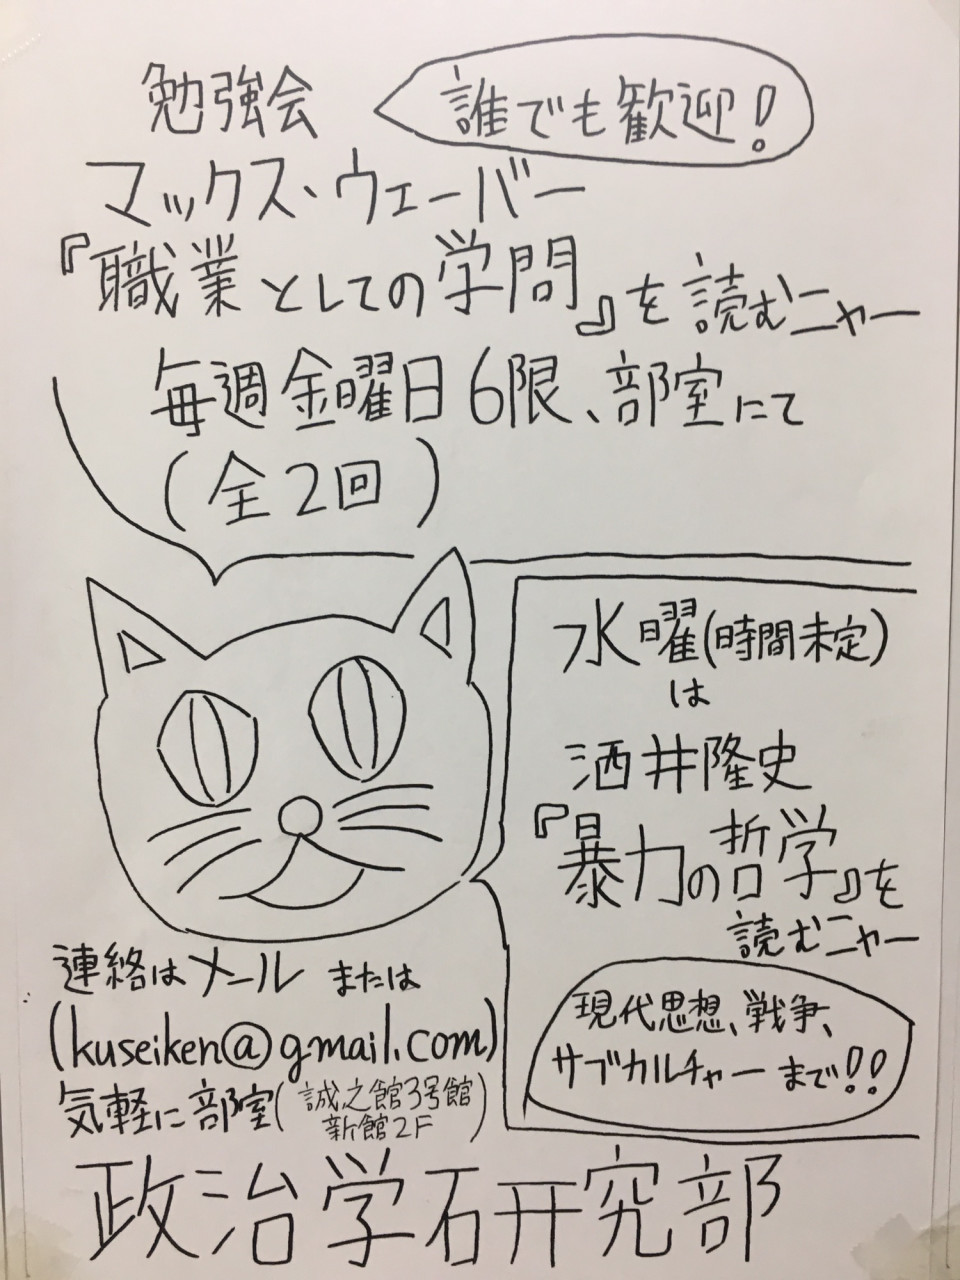 勉強会
誰でも歓迎!
マックス・ウェーバー
『職業としての学問』を読むニャー
毎週金曜日6限、部室にて
(全2回)
水曜(時間未定)
は
酒井隆史
『暴力の哲学』を
読むニャー
現代思想、戦争、
サブカルチャーまで!!
連絡はメールまたは
(kuseiken@gmail.com)
気軽に部室(誠之館3号館
新館2F)
政治学研究部